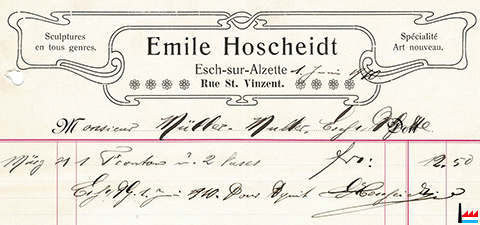 Sculptures
en tous genres.
Emile Hoscheidt
Spécialité
Art-nouveau.
Esch-sur-Alzette 1. Juni 1910
Rue St. Vinzent.
Monsieur Müller-
März 21 1 Fronton u. 2 Vases frs: 12.50
Esch 1. Juni 1910. Pour Aquit EHoscheidt